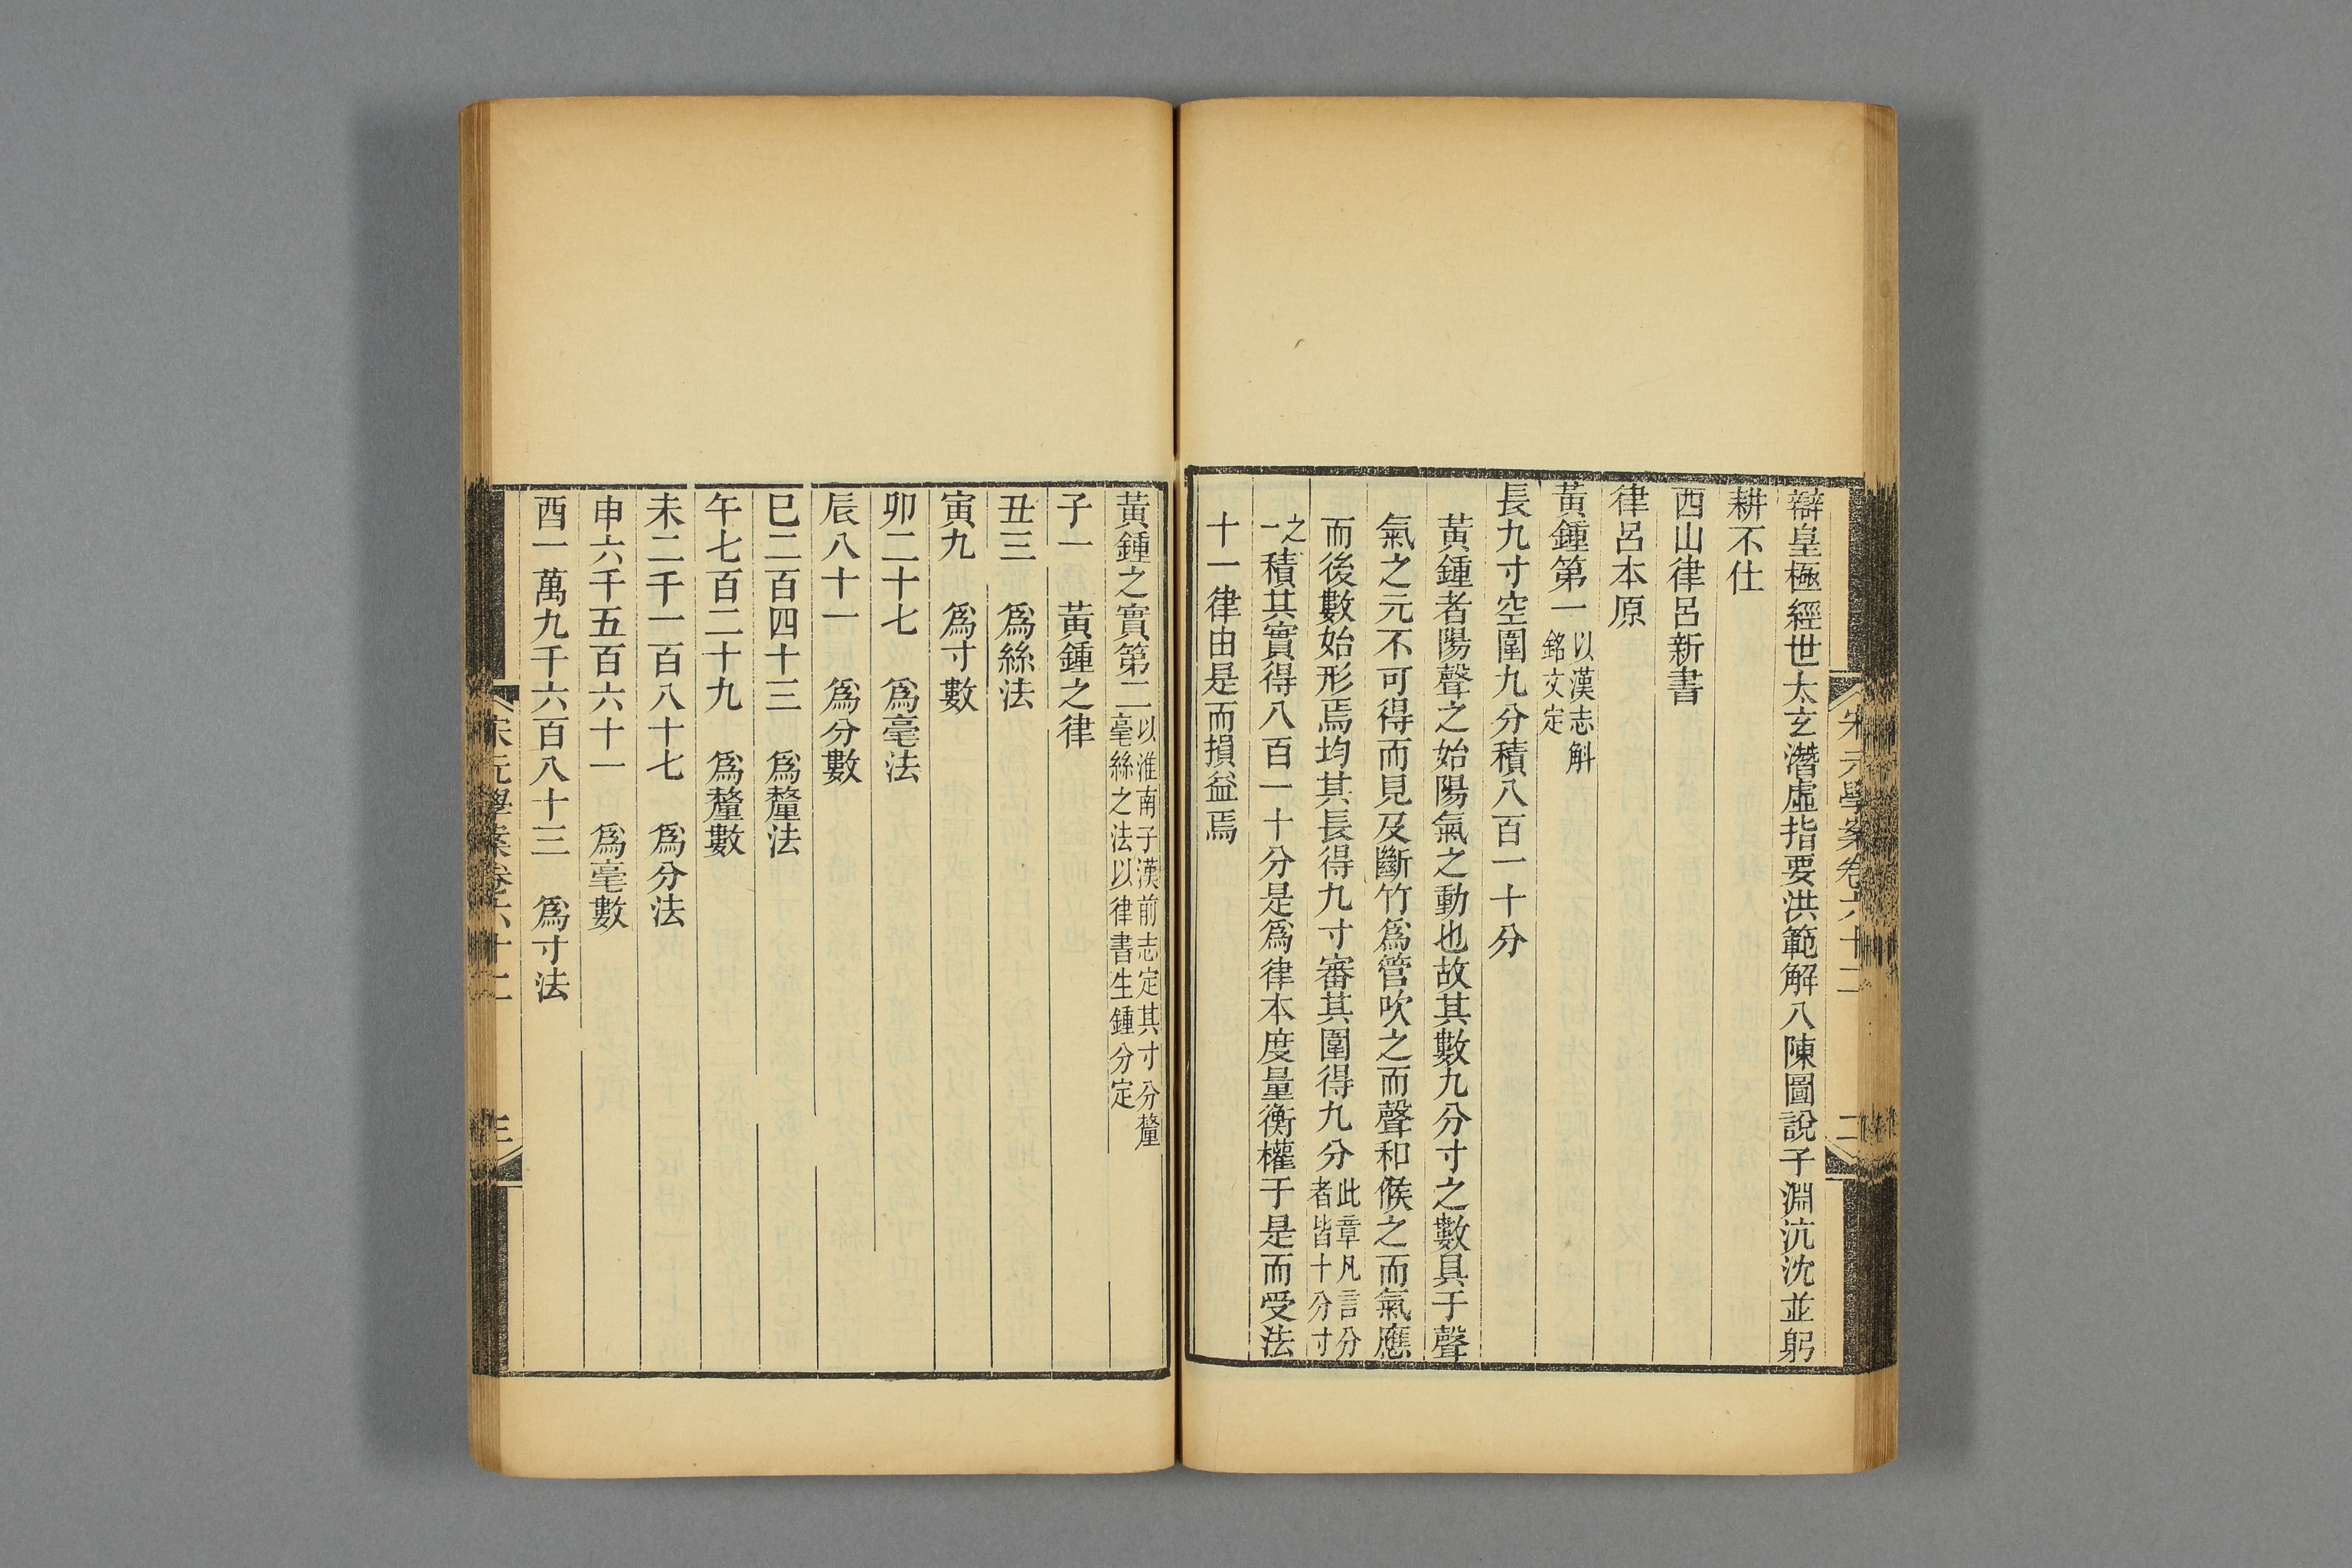 宋元學案卷六十二
二
辯皇極經世太玄潛虛指要洪範解八陳圖說子淵沆沈並躬
耕不仕
西山律呂新書
律呂本原
黃鍾第一以漢志斛銘文定
長九寸空圍九分積八百一十分
黃鍾者陽聲之始陽氣之動也故其數九分寸之數具于聲
氣之元不可得而見及斷竹爲管吹之而聲和候之而氣應
而後數始形焉均其長得九寸審其圍得九分此章凡言分者皆十分寸
之一積其實得八百一十分是爲律本度量衡權于是而受法
十一律由是而損益焉
黃鍾之實第二以淮南子漢前志定其寸分釐毫絲之法以律書生鍾分定
子一　黃鍾之律
丑三　爲絲法
寅九　爲寸數
卯二十七　爲毫法
辰八十一　爲分數
巳二百四十三　爲釐法
午七百二十九　爲釐數
未二千一百八十七　爲分法
申六千五百六十一　爲毫數
酉一萬九千六百八十三　爲寸法
宋元學案卷六十二
三